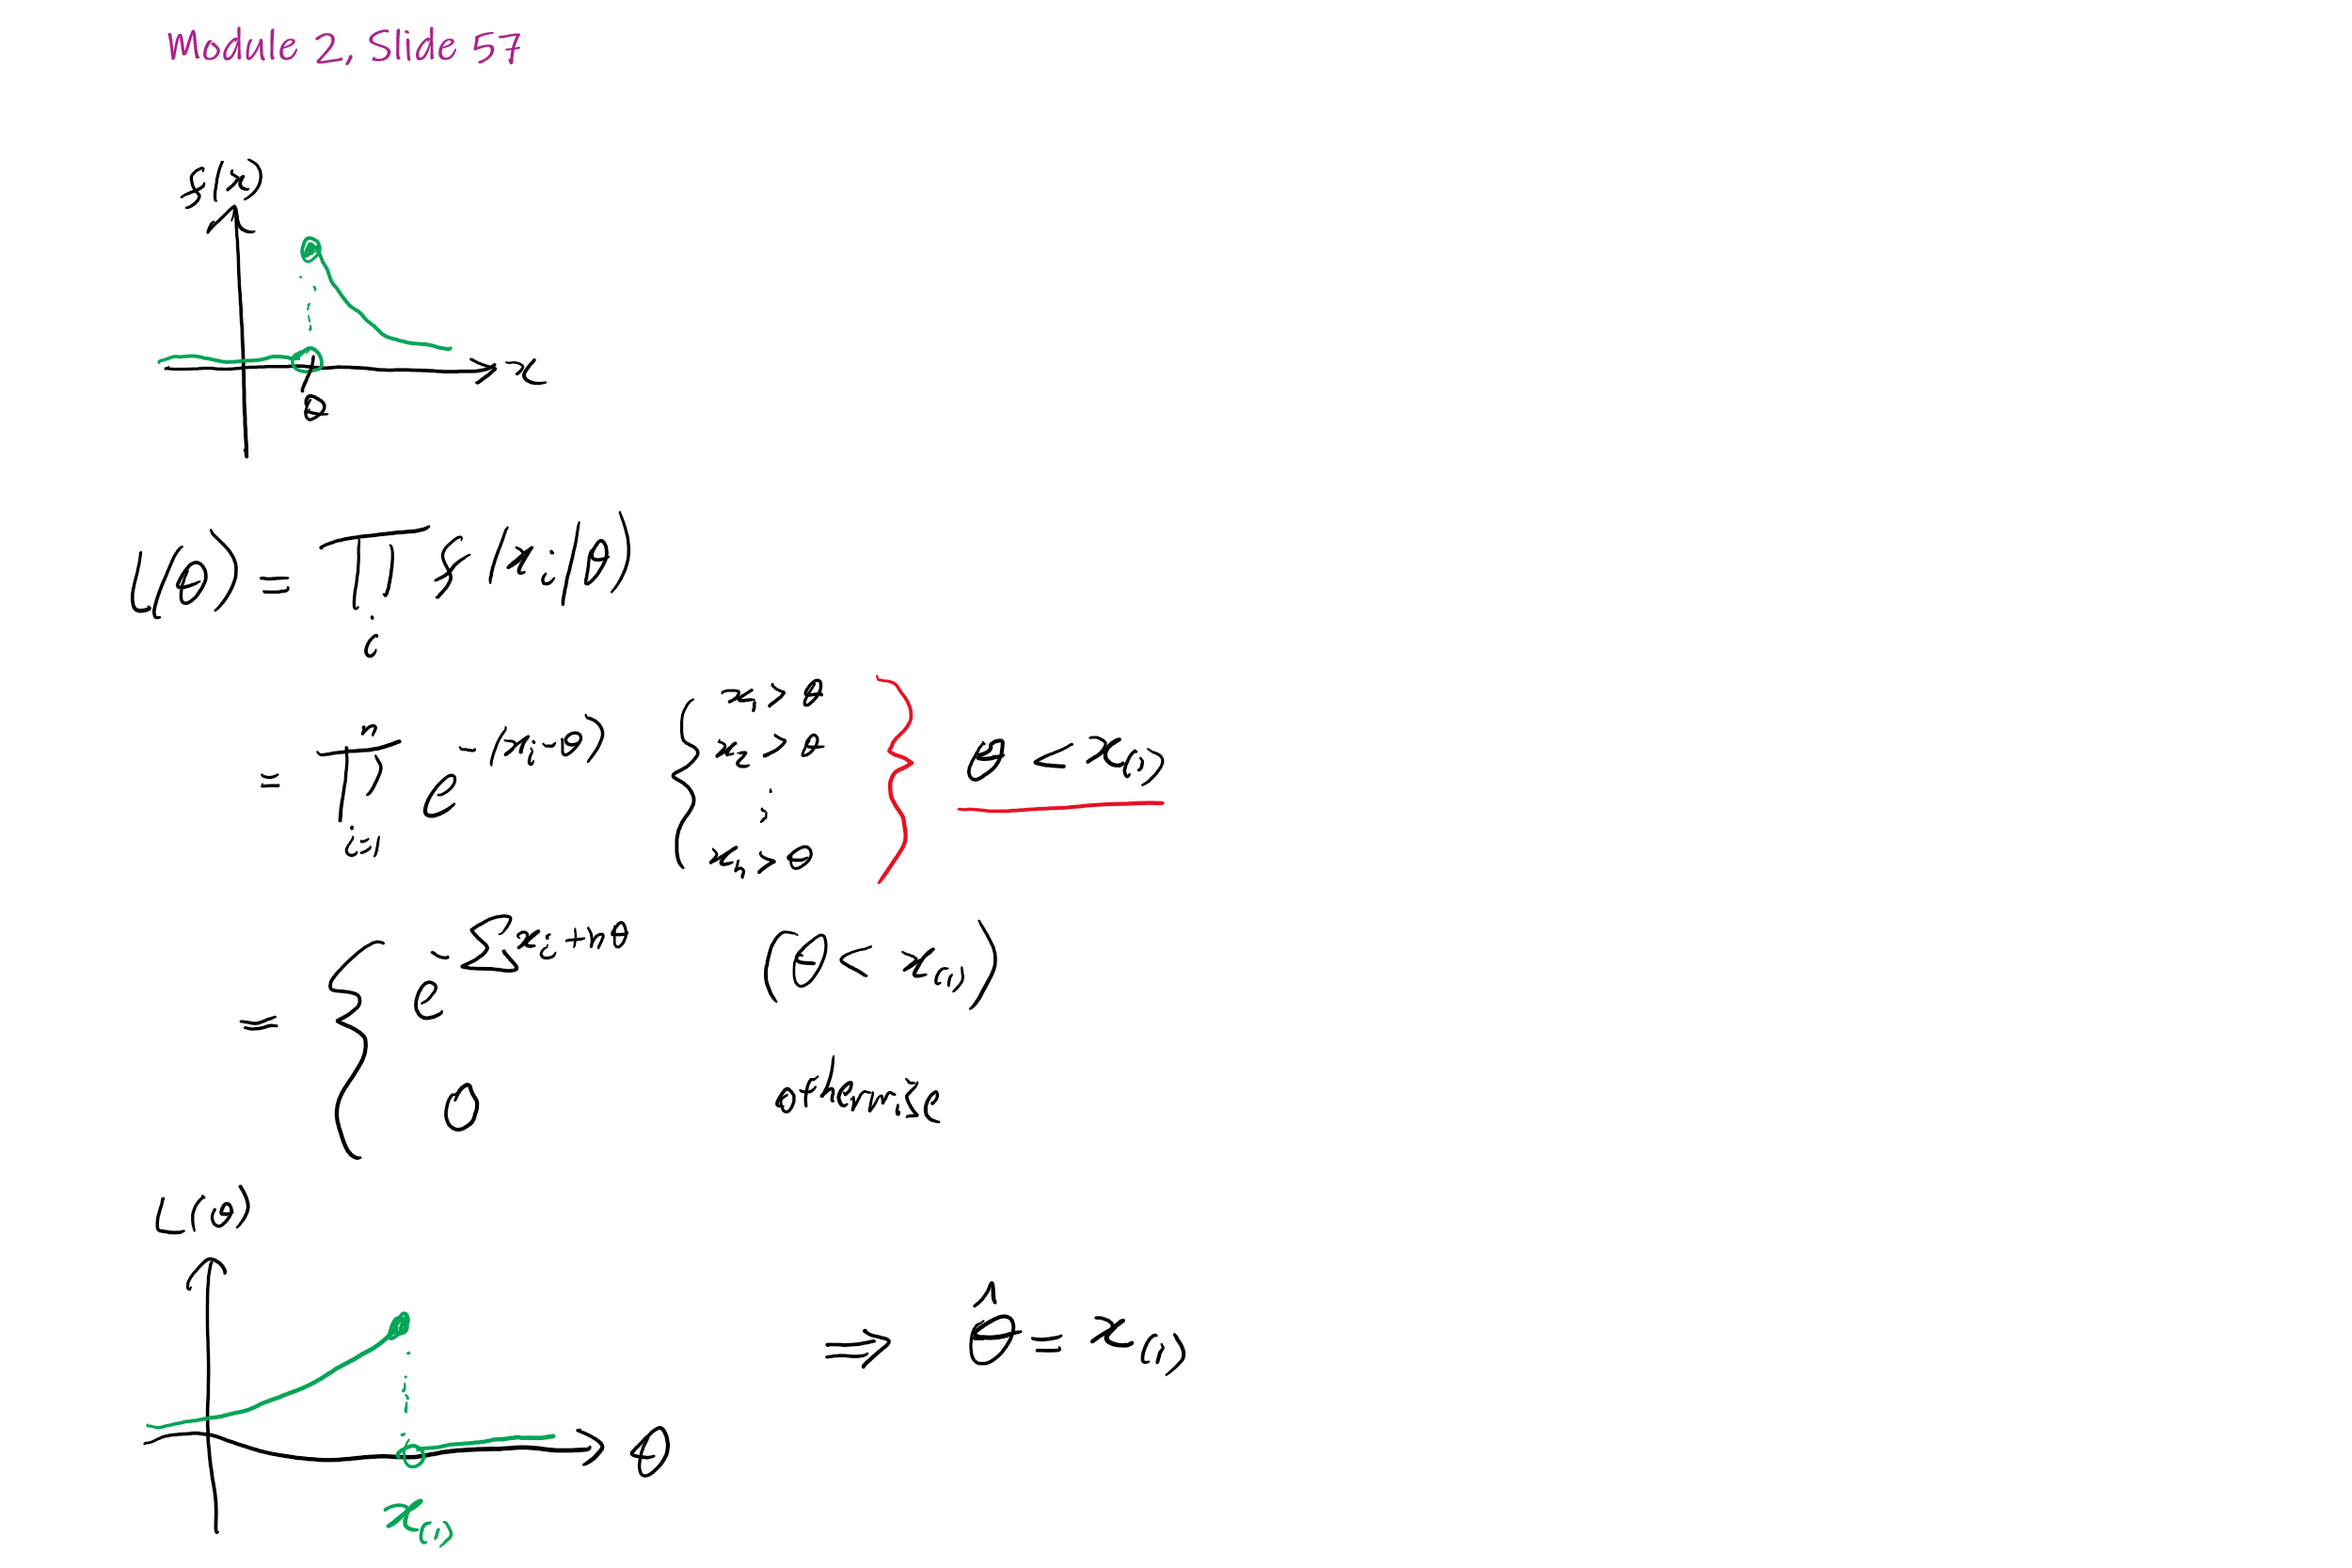 Module 2, Slide 57
f(x)
x
θ
L(θ) = ∏_i f(x_i|θ)
= ∏_{i=1}^{n} e^{-(x_i-θ)} { x_1 > θ
x_2 > θ
⋮
x_n > θ } θ < x_(1)
= { e^{-∑x_i+nθ} (θ < x_(1))
0 otherwise
L(θ)
⇒ θ̂ = x_(1)
θ
x_(1)